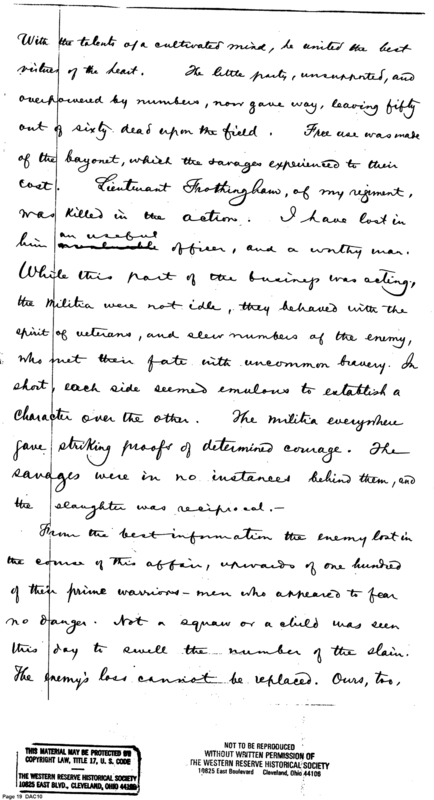 With the talents of a cultivated mind, he united the best
virtues of the heart. The little party, unsupported, and
overpowered by numbers, now gave way, leaving fifty
out of sixty dead upon the field. Free use was made
of the bayonet, which the savages experienced to their
cost. Lieutenant Frothingham, of my regiment,
was killed in the action. I have lost in
an useful
him invaluable officer, and a worthy man.
While this part of the business was acting,
the militia were not idle, they behaved with the
spirit of veterans, and slew numbers of the enemy,
who met their fate with uncommon bravery. In
short, each side seemed emulous to establish a
character over the other. The militia everywhere
gave striking proofs of determined courage. The
savages were in no instances behind them, and
the slaughter was reciprocal.—
From the best information the enemy lost in
the course of this affair, upwards of one hundred
of their prime warriors – men who appeared to fear
no danger. Not a squaw or a child was seen
this day to swell the number of the slain.
The enemy's loss cannot be replaced. Ours, too,
THIS MATERIAL MAY BE PROTECTED BY
COPYRIGHT LAW, TITLE 17, U. S. CODE
THE WESTERN RESERVE HISTORICAL SOCIETY
10825 EAST BLVD., CLEVELAND, OHIO 44106
NOT TO BE REPRODUCED
WITHOUT WRITTEN PERMISSION OF
THE WESTERN RESERVE HISTORICAL SOCIETY
10825 East Boulevard Cleveland, Ohio 44106
Page 19 DAC10